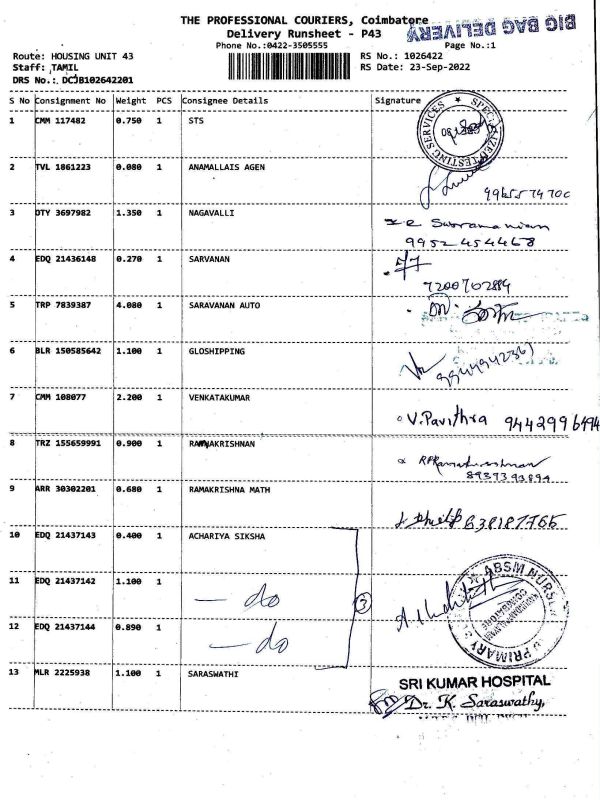 THE PROFESSIONAL COURIERS, Coimbatore
BIG BAG DELIVERY
Delivery Runsheet - P43
Phone No.:0422-3505555 Page No.:1
Route: HOUSING UNIT 43 RS No.: 1026422
Staff: TAMIL RS Date: 23-Sep-2022
DRS No.: DCJB102642201
S No Consignment No Weight PCS Consignee Details Signature
1 CMM 117482 0.750 1 STS
SPECIALIZED TESTING SERVICES
2 TVL 1861223 0.080 1 ANAMALLAIS AGEN
9965574700
3 DTY 3697982 1.350 1 NAGAVALLI
Subramanian
9952454468
4 EDQ 21436148 0.270 1 SARVANAN
7200702884
5 TRP 7839387 4.080 1 SARAVANAN AUTO
6 BLR 150585642 1.100 1 GLOSHIPPING
9944942367
7 CMM 108077 2.200 1 VENKATAKUMAR
V.Pavithra 9442996494
8 TRZ 155659991 0.900 1 RAMAKRISHNAN
8939393894
9 ARR 30302201 0.680 1 RAMAKRISHNA MATH
638187765
10 EDQ 21437143 0.400 1 ACHARIYA SIKSHA
11 EDQ 21437142 1.100 1 — do
3
12 EDQ 21437144 0.890 1 — do
ABSM NURSERY PRIMARY
COIMBATORE
13 MLR 2225938 1.100 1 SARASWATHI
SRI KUMAR HOSPITAL
Dr. K. Saraswathy,